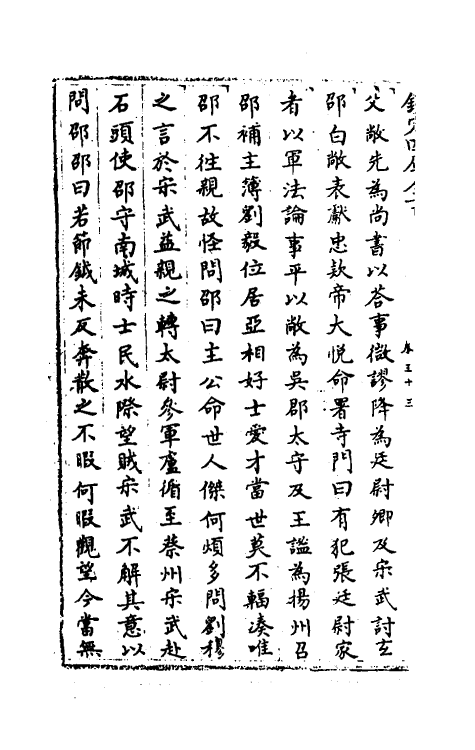 欽定四庫全書
卷三十三
父敞先為尚書以荅事微謬降為廷尉卿及宋武討玄
邵白敞表獻忠欵帝大悦命署寺門曰有犯張廷尉家
者以軍法論事平以敞為吳郡太守及王謐為揚州召
邵補主簿劉毅位居亞相好士愛才當世莫不輻湊唯
邵不往親故怪問邵曰主公命世人傑何煩多問劉穆
之言於宋武益親之轉太尉參軍盧循至蔡州宋武赴
石頭使邵守南城時士民水際望賊宋武不解其意以
問邵邵曰若節鉞未反奔散之不暇何暇觀望今當無